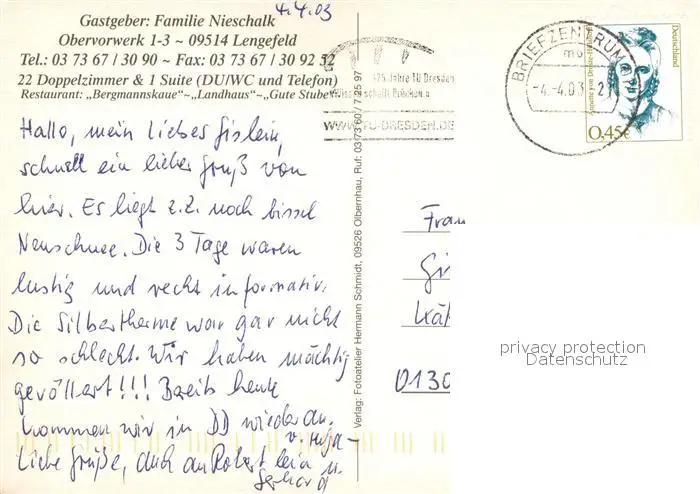 4.4.03
Gastgeber: Familie Nieschalk
Obervorwerk 1-3 ~ 09514 Lengefeld
Tel.: 03 73 67 / 30 90 ~ Fax: 03 73 67 / 30 92 52
22 Doppelzimmer & 1 Suite (DU/WC und Telefon)
Restaurant: „Bergmannskaue"~„Landhaus"~„Gute Stube"
Hallo, mein liebes Gislein,
schnell ein lieber Gruß von
hier. Es liegt z.Z. noch bissel
Neuschnee. Die 3 Tage waren
lustig und recht informativ.
Die Silbertherme war gar nicht
so schlecht. Wir haben mächtig
gevöllert!!! Bereits heute
kommen wir in DD wieder an.
Liebe Grüße, auch an Robert
u.
Gerhard
Verlag: Fotoatelier Hermann Schmidt, 09526 Olbernhau, Ruf: 03 73 60 / 7 25 97
175 Jahre TU Dresden
WWW.TU-DRESDEN.DE
BRIEFZENTRUM
-4.-4.03
Deutschland
Annette von Droste-Hülshoff
0,45€
Frau
Gi
Kät
0130
privacy protection
Datenschutz